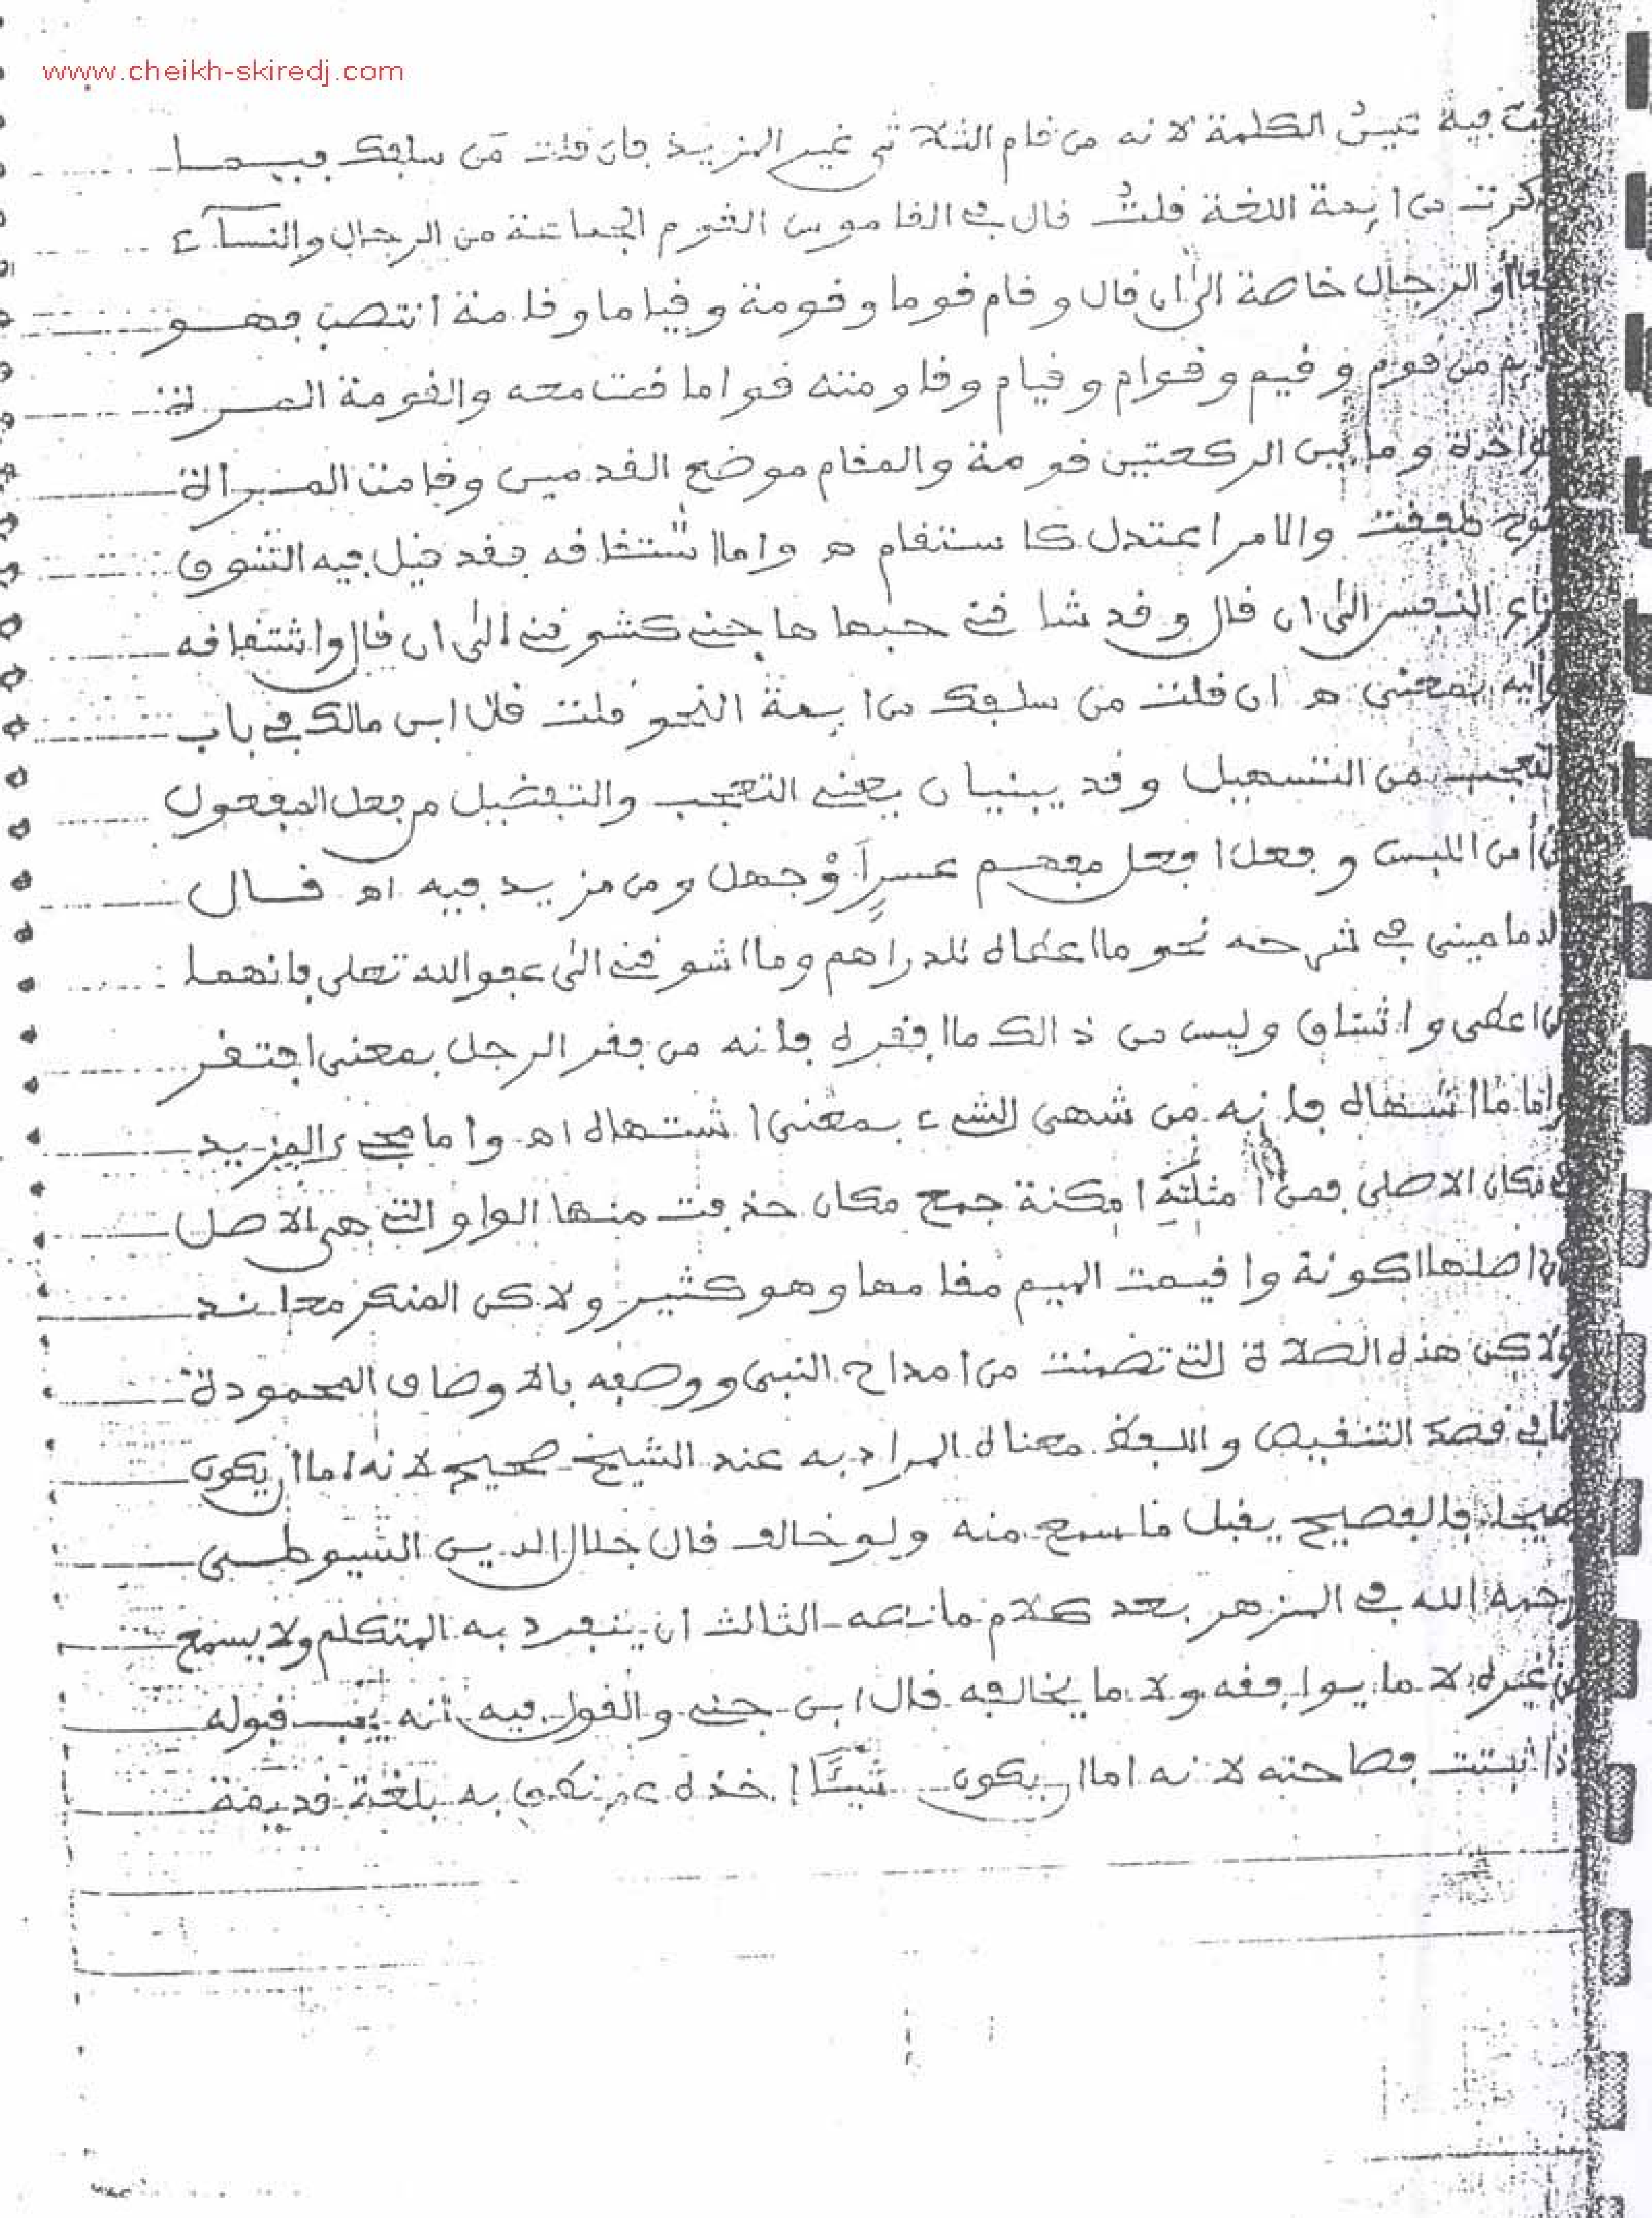 www.cheikh-skiredj.com
فيه عين الكلمة لانه من قام الثلاثي غير المزيد فان قلت من سلفك فيما
ذكرت من ايمة اللغة قلت قال في القاموس القوم الجماعة من الرجال والنساء
معا أو الرجال خاصة الى ان قال وقام قوما وقومة وقياما وقامة انتصب فهو
قايم من قوم وقيم وقوام وقيام وقاومته قواما قمت معه والقومة المرة
الواحدة وما بين الركعتين قومة والمقام موضع القدمين وقامت المرأة
تنوح طفقت والامر اعتدل كاستقام ه واما اشتقافه فقد قيل فيه الشوق
نزاع النفس الى ان قال وقد شاقني حبها هاجني كشوقني الى ان قال واشتاقه
واليه بمعنى ه ان قلت من سلفك من ايمة النحو قلت قال ابن مالك في باب
التعجب من التسهيل وقد يبنيان يعني التعجب والتفضيل من فعل المفعول
ان أمن اللبس وفعل افعل مفهم عسر أو جهل ومن مزيد فيه اه قال
الدماميني في شرحه نحو ما اعطاه للدراهم وما اشوقني الى عفو الله تعلى فانهما
من اعطى واشتاق وليس من ذالك ما افقره فانه من فقر الرجل بمعنى افتقر
واما ما اشهاه فانه من شهى الشيء بمعنى اشتهاه اه واما مجيء المزيد
في مكان الاصلي فمن امثلته امكنة جمع مكان حذفت منها الواو التي هي الاصل
لان اصلها اكونة واقيمت الميم مقامها وهو كثير ولاكن المنكر معاند
ولاكن هذه الصلاة التي تضمنت من امداح النبي ووصفه بالاوصاف المحمودة
قصد التنقيص واللفظ معناه المراد به عند الشيخ صحيح لانه اما ان يكون
فصيحا فالفصيح يقبل ما سمع منه ولو خالف قال جلال الدين السيوطي
رحمه الله في المزهر بعد كلام ما نصه الثالث ان ينفرد به المتكلم ولا يسمع
من غيره لا ما يوافقه ولا ما يخالفه قال ابن جني والقول فيه انه يجب قبوله
اذا ثبتت فصاحته لانه اما ان يكون شيئا اخذه عمن نطق به بلغة قديمة